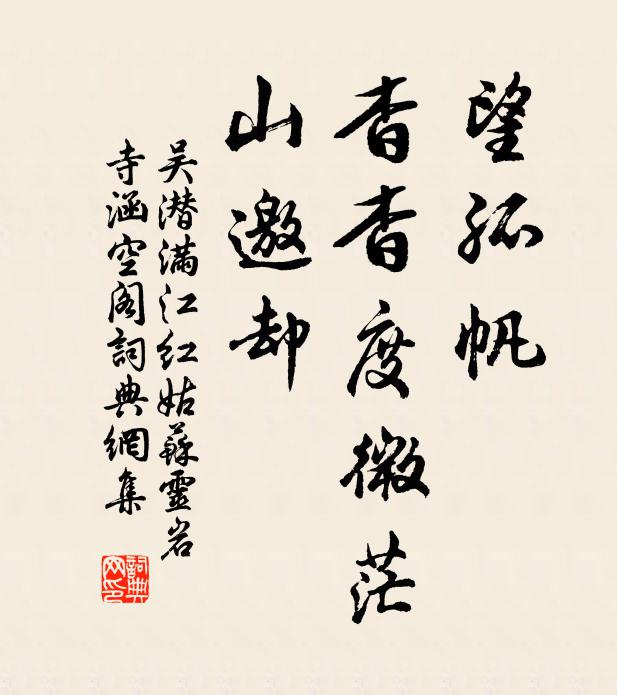 望孤帆
杳杳度微茫
山邀却
吴潜满江红姑蘇靈岩
寺涵空阁詞典網集
詞典
网印